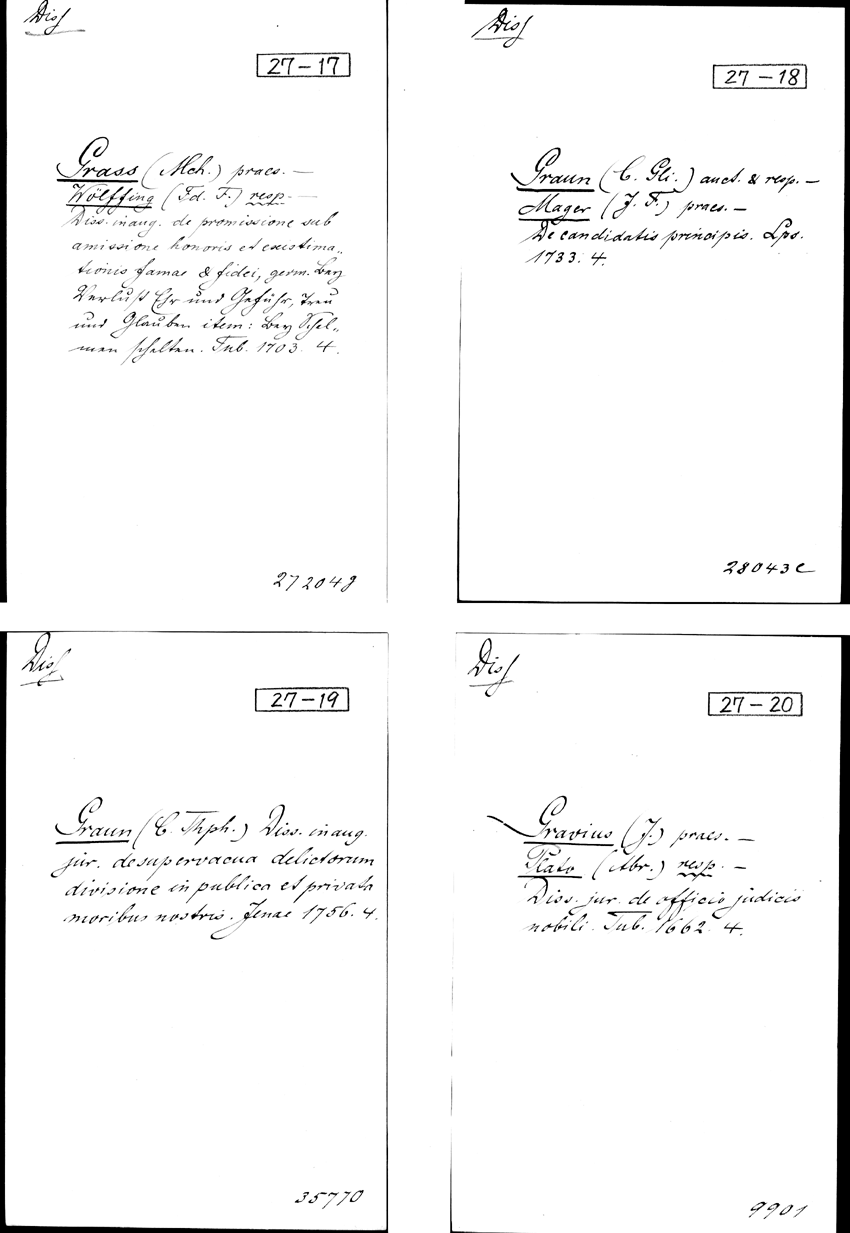 Diss
27-17
Grass (Mch.) praes. —
Wölffing (Fd. F.) resp. —
Diss. inaug. de promissione sub
amissione honoris et existima-
tionis famae & fidei, germ. Bey
Verlust Ehr und Geführ, Treu
und Glauben item: Bey Schel-
men schelten. Tub. 1703. 4.
27204g
Diss
27-18
Graun (C. Gli.) auct. & resp. —
Mager (J. F.) praes. —
De candidatis principis. Lps.
1733. 4.
28043c
Diss
27-19
Graun (C. Thph.) Diss. inaug.
jur. de supervacua delictorum
divisione in publica et privata
moribus nostris. Jenae 1756. 4.
35770
Diss
27-20
Gravius (J.) praes. —
Plato (Abr.) resp. —
Diss. jur. de officio judicis
nobili. Tub. 1662. 4.
9901